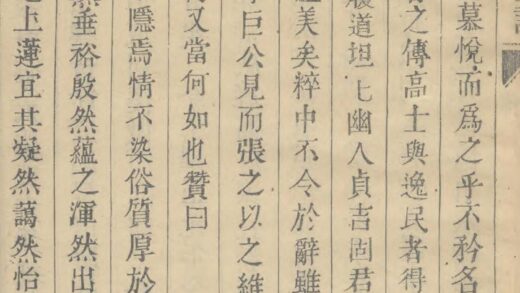 慕悅而為之乎不矜名
之傳高士與逸民者得
履道坦七幽人貞吉固君
美矣粹中不令於辭雖
巨公見而張之以之維
又當何如也贊曰
隱焉情不染俗質厚於
垂裕殷然蘊之渾然出
上蓮宜其凝然藹然怡